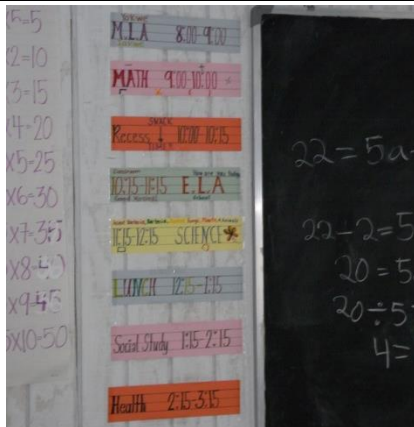 x5=5
x2=10
x3=15
x4=20
x5=25
x6=30
x7=35
x8=40
x9=45
5x10=50
M.L.A 8:00-9:00
MATH 9:00-10:00
SNACK
Recess 10:00-10:15
10:15-11:15 E.L.A
11:15-12:15 SCIENCE
LUNCH 12:15-1:15
Social Study 1:15-2:15
Health 2:15-3:15
22=5a
22-2=5
20=5
20÷5
4=